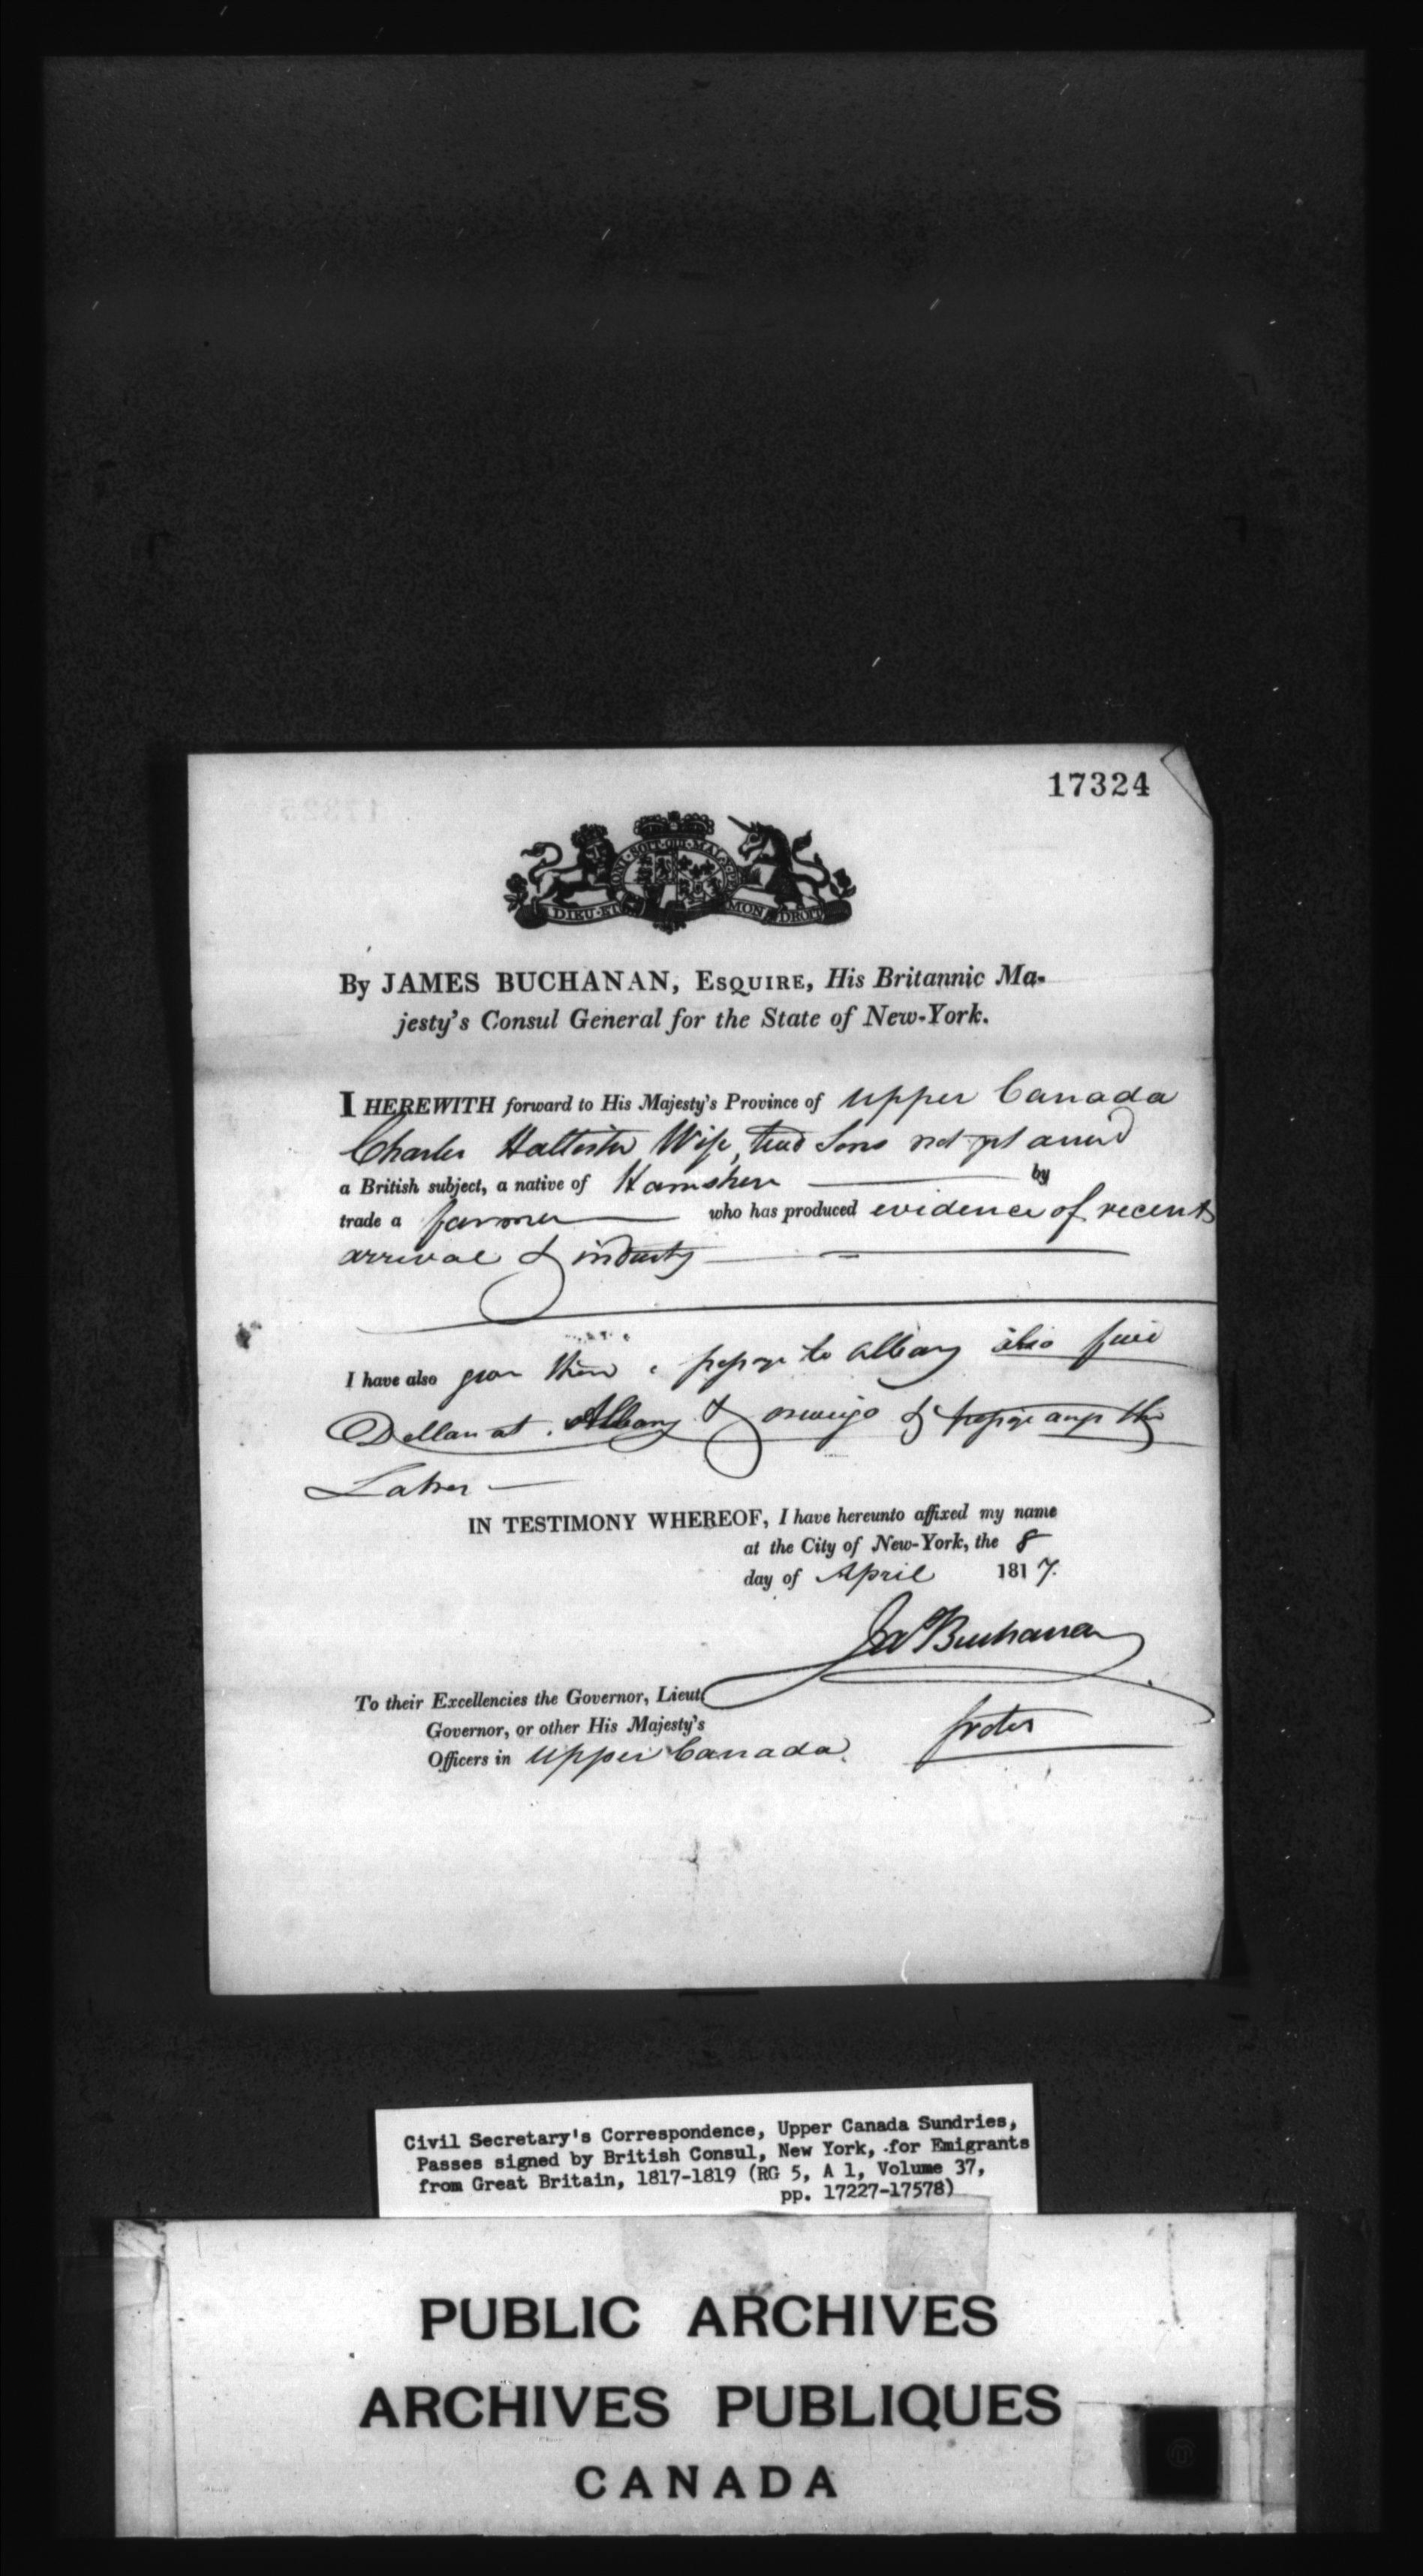 17324
HONI·SOIT·QUI·MAL·Y·PE
DIEU·ET MON DROIT
By JAMES BUCHANAN, ESQUIRE, His Britannic Ma-
jesty's Consul General for the State of New-York.
I HEREWITH forward to His Majesty's Province of Upper Canada
Charles Wife, two Sons not yet arrived
a British subject, a native of Hamshire by
trade a farmer who has produced evidence of recent
arrival & industry
I have also given them a passage to Albany also five
Dollars at Albany & oswego & passage the
Lakes
IN TESTIMONY WHEREOF, I have hereunto affixed my name
at the City of New-York, the 8
day of April 1817.
Jas Buchanan
To their Excellencies the Governor, Lieut.
Governor, or other His Majesty's
Officers in Upper Canada.
Civil Secretary's Correspondence, Upper Canada Sundries,
Passes signed by British Consul, New York, for Emigrants
from Great Britain, 1817-1819 (RG 5, A 1, Volume 37,
pp. 17227-17578)
PUBLIC ARCHIVES
ARCHIVES PUBLIQUES
CANADA